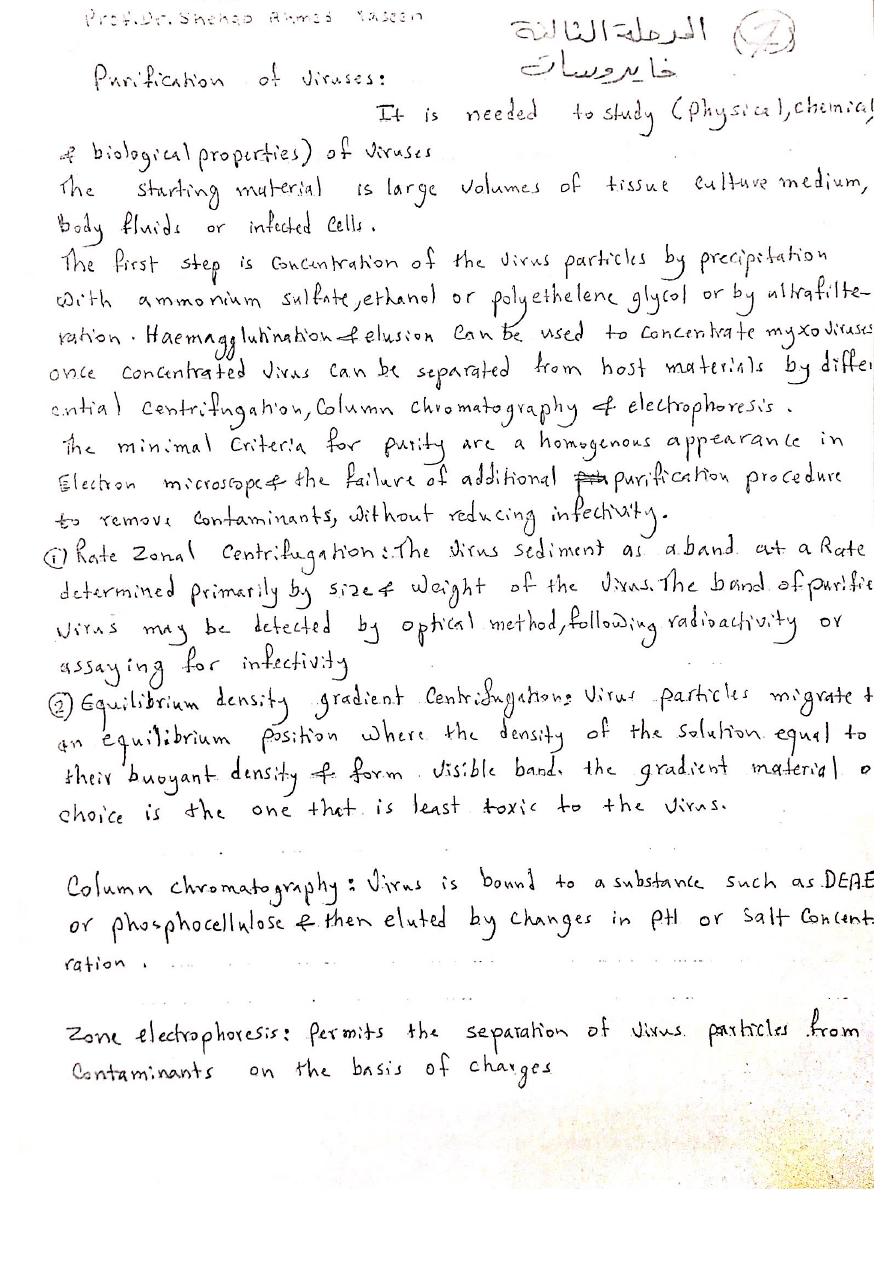 Prof.Dr. Shehab Ahmed Yaseen
المرحلة الثالثة 2
فايروسات
Purification of viruses:
It is needed to study (physical, chemical
& biological properties) of viruses
The starting material is large volumes of tissue culture medium,
body fluids or infected cells.
The first step is concentration of the virus particles by precipitation
with ammonium sulfate, ethanol or polyethelene glycol or by ultrafilte-
ration. Haemagglutination & elusion can be used to concentrate myxoviruses
once concentrated virus can be separated from host materials by differ
ential centrifugation, Column chromatography & electrophoresis.
The minimal criteria for purity are a homogenous appearance in
Electron microscope & the failure of additional purification procedure
to remove contaminants, without reducing infectivity.
① Rate Zonal Centrifugation: The virus sediment as a band at a Rate
determined primarily by size & weight of the virus. The band of purifie
virus may be detected by optical method, following radioactivity or
assaying for infectivity
② Equilibrium density gradient Centrifugation: Virus particles migrate t
an equilibrium position where the density of the solution equal to
their buoyant density & form visible band. the gradient material o
choice is the one that is least toxic to the virus.
Column chromatography: Virus is bound to a substance such as DEAE
or phosphocellulose & then eluted by changes in PH or salt concent
ration.
Zone electrophoresis: Permits the separation of virus particles from
contaminants on the basis of charges